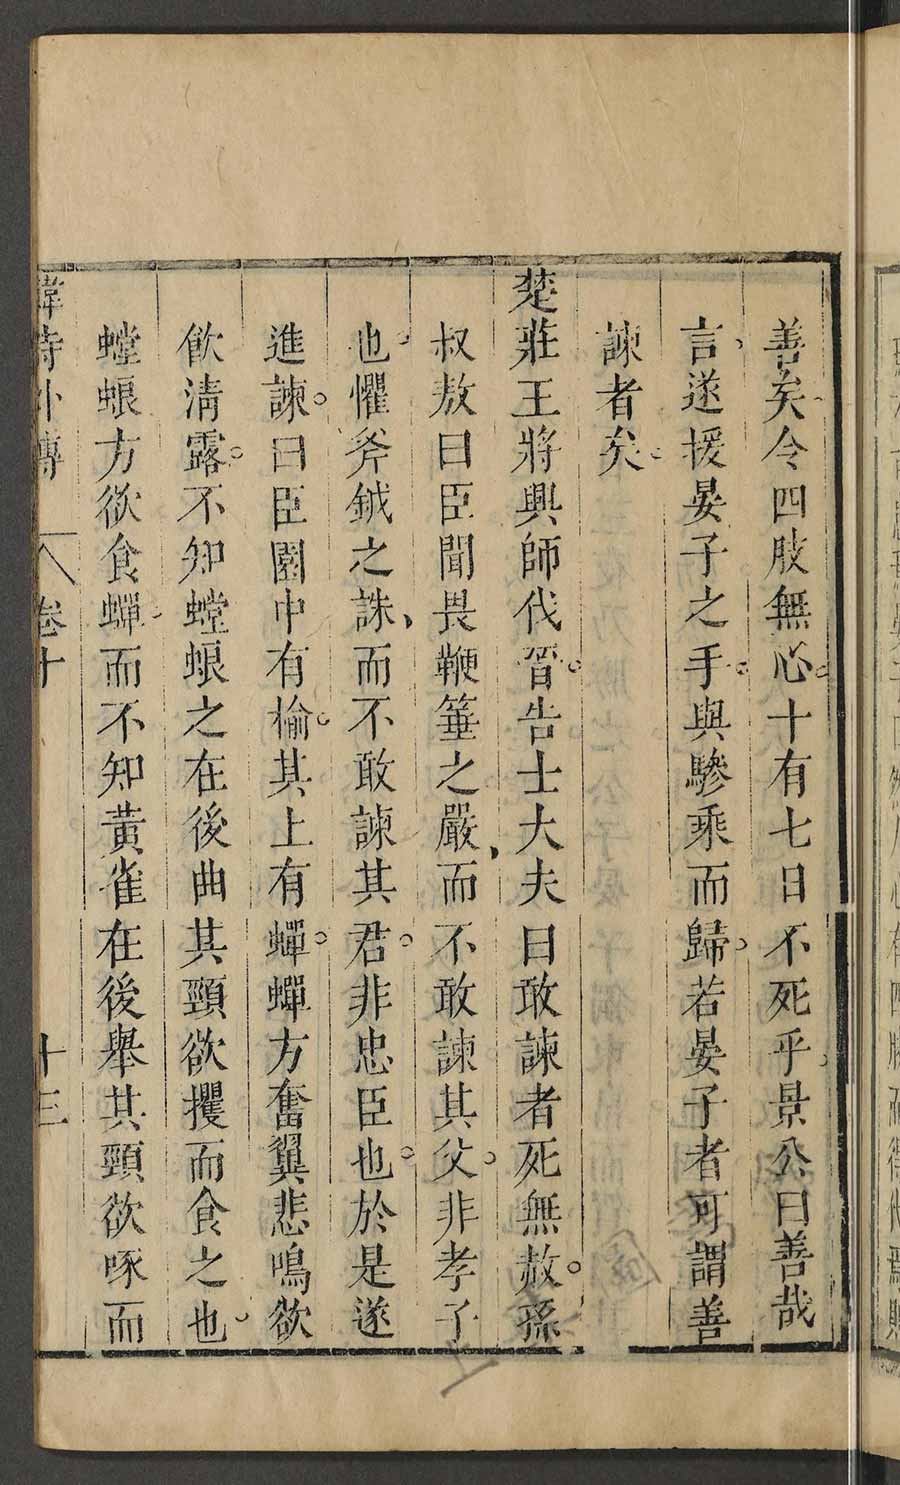 善矣令四肢無心十有七日不死乎景公曰善哉
言遂援晏子之手與驂乘而歸若晏子者可謂善
諫者矣
楚莊王將興師伐晉告士大夫曰敢諫者死無赦孫
叔敖曰臣聞畏鞭箠之嚴而不敢諫其父非孝子
也懼斧鉞之誅而不敢諫其君非忠臣也於是遂
進諫曰臣園中有榆其上有蟬蟬方奮翼悲鳴欲
飲清露不知螳蜋之在後曲其頸欲攫而食之也
螳蜋方欲食蟬而不知黃雀在後舉其頸欲啄而
韓詩外傳 卷十 十三